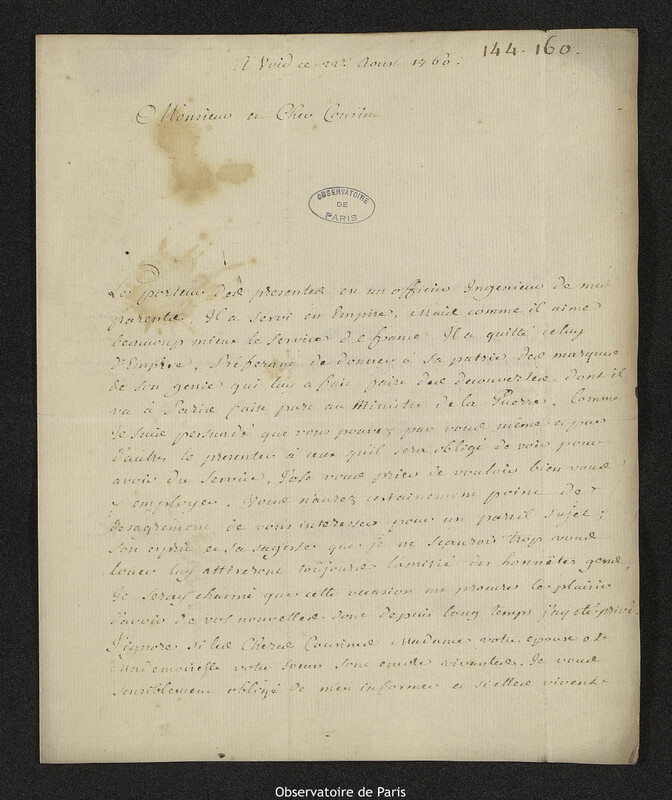 144-160.
A Void ce 22e Aoust 1760.
Monsieur et Cher Cousin
OBSERVATOIRE
DE
PARIS
Le Porteur des presentes est un officier Ingenieur de mes
parents. Il a servi en Empire, Mais comme il aime
beaucoup mieux le service de france Il a quitté celuy
d'Empire, Préferant de donner à sa patrie des marques
de son genie qui luy a fait faire des decouvertes dont il
va à Paris faire part au Ministre de la Guerre. Comme
Je suis persuadé que vous pouvez par vous même et par
d'autres le presenter à ceux qu'il sera obligé de voir pour
avoir du service, J'ose vous prier de vouloir bien vous
y employer. Vous n'aurez certainement point de
desagrément de vous interesser pour un pareil sujet;
son esprit et sa sagesse que je ne scaurois trop vous
louer luy attireront toujours l'amitié des honnêtes gens,
Je seray charmé que cette occasion me procure le plaisir
d'avoir de vos nouvelles dont depuis long temps j'ay eté privé.
J'ignore si les Cheres Cousines Madame votre epouse et
Mademoiselle votre soeur sont encore vivantes. Je vous
sensiblement obligé de m'en informer et si elles vivent
Observatoire de Paris